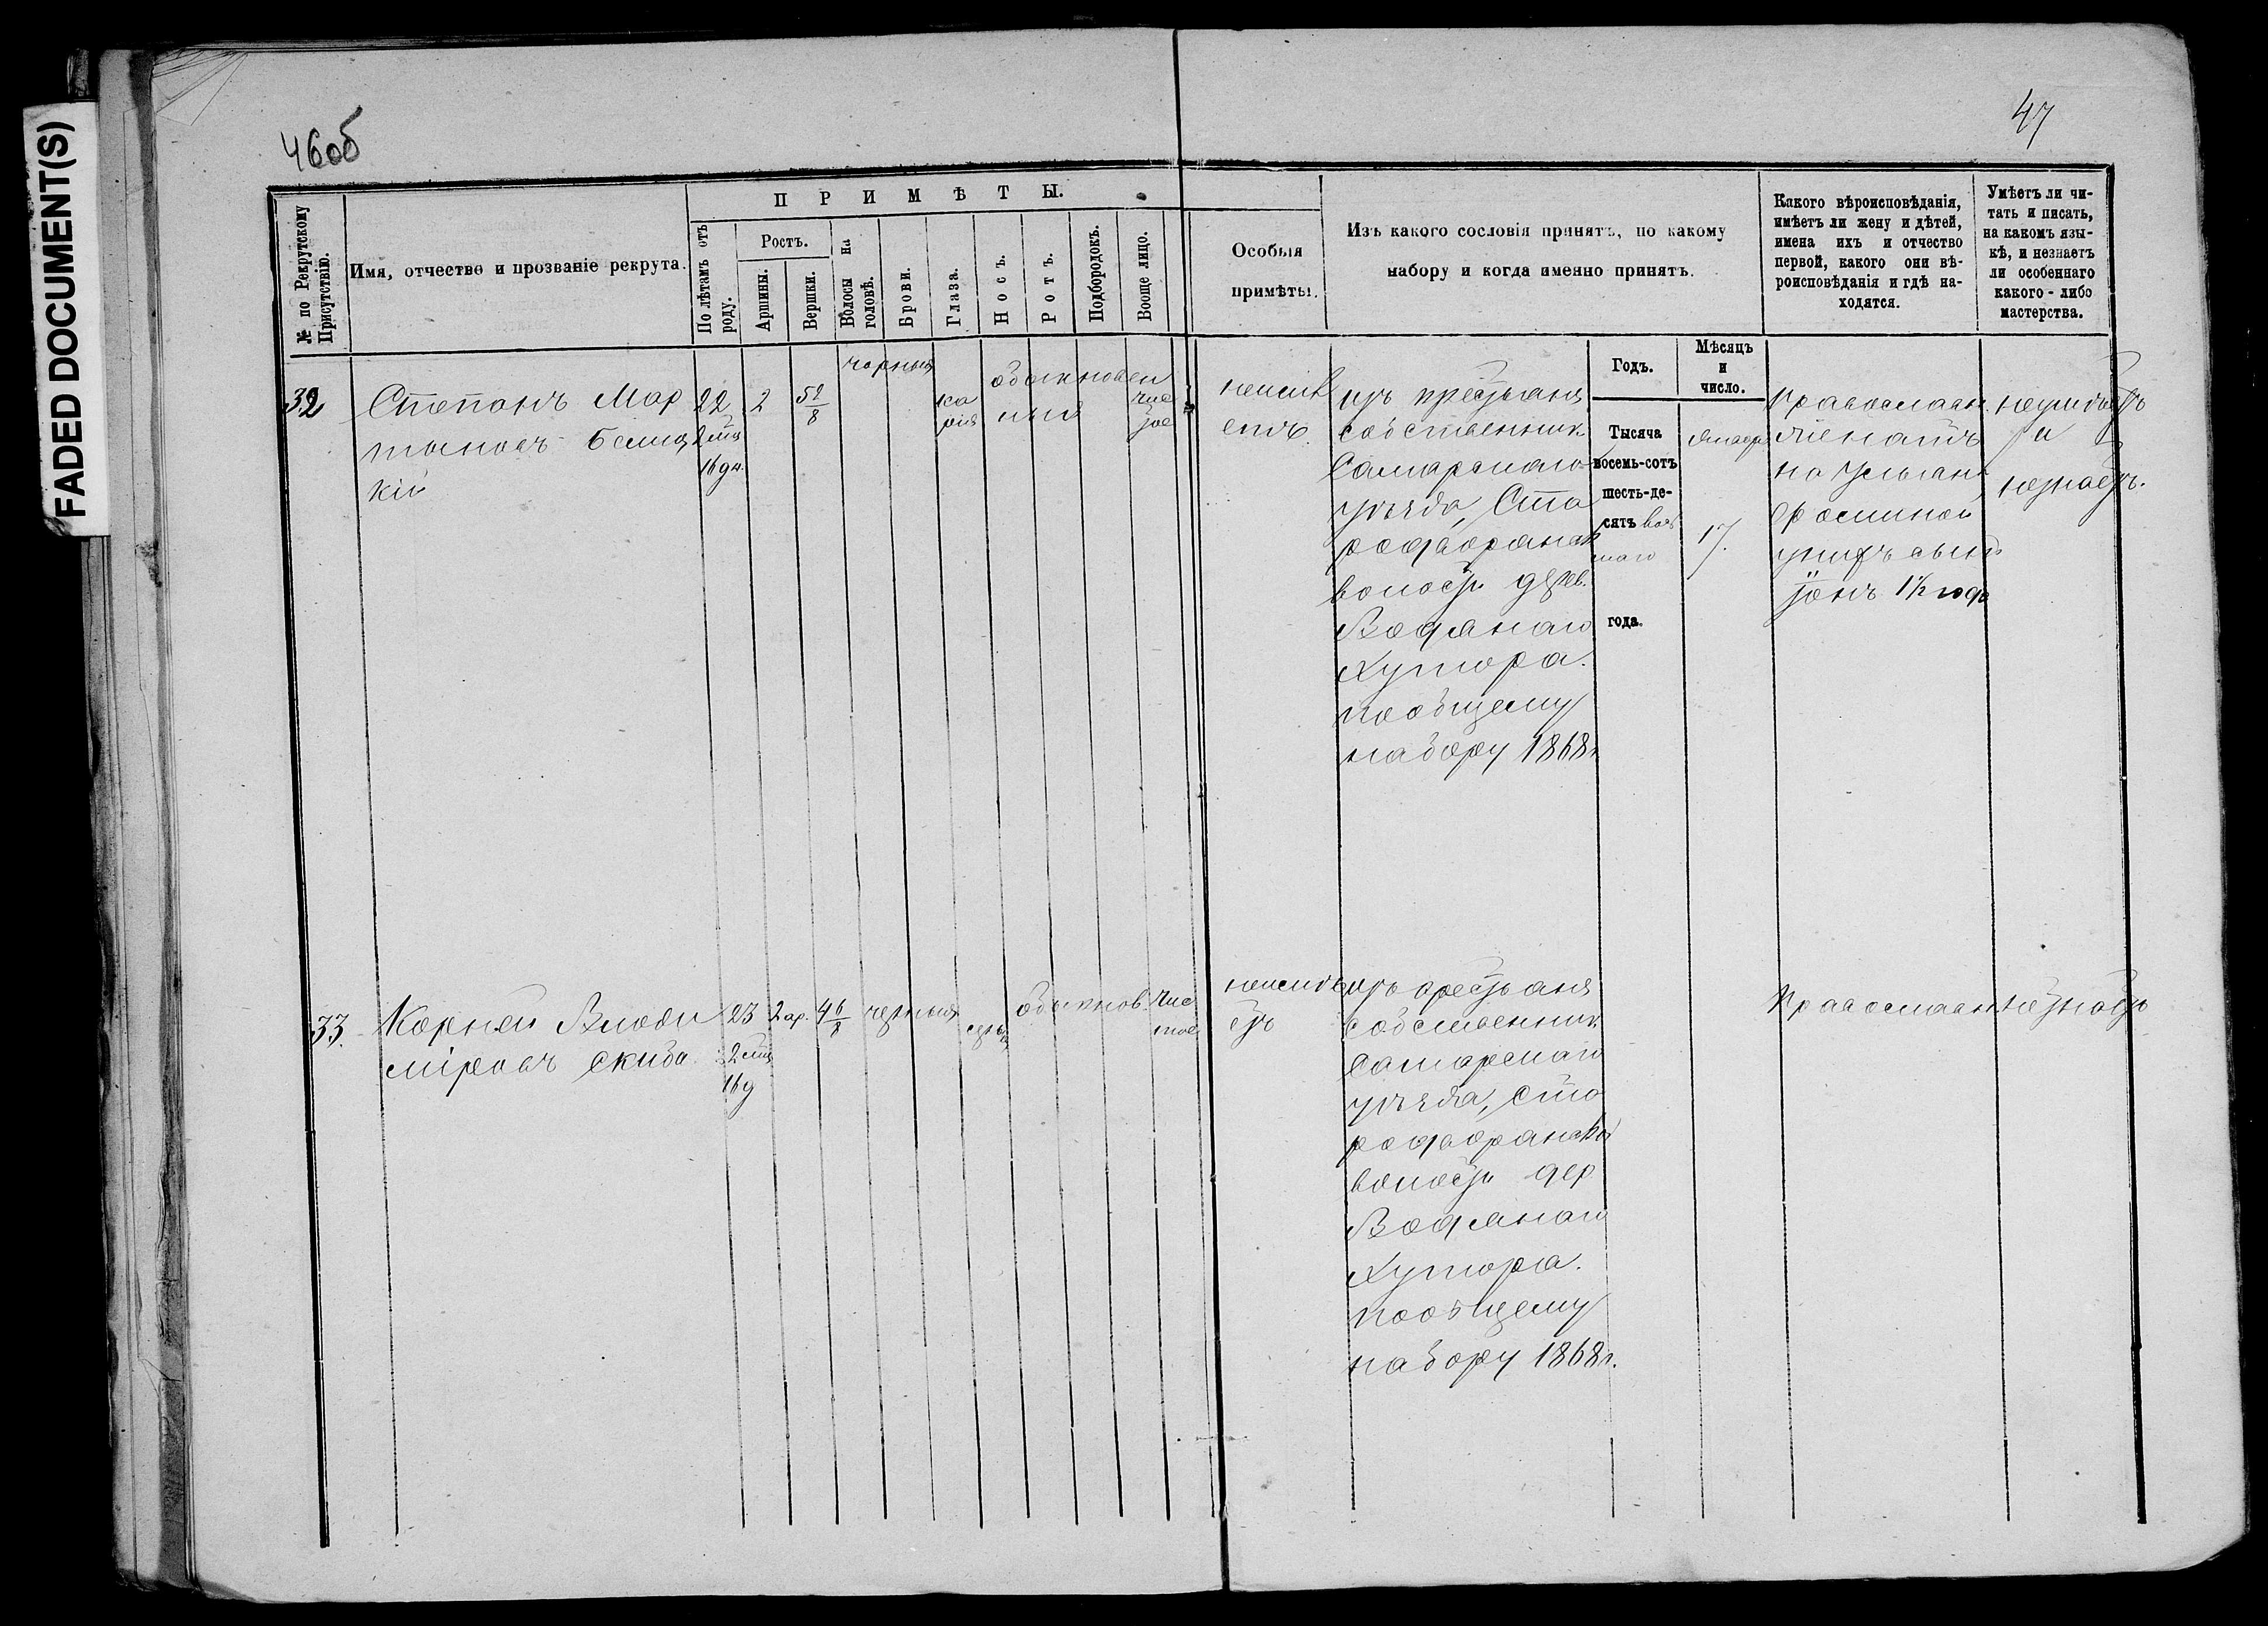 FADED DOCUMENT(S)
46об
47
ПРИМѢТЫ.
№ по Рекрутскому Присутствію.
Имя, отчество и прозваніе рекрута.
По лѣтамъ отъ роду.
Ростъ.
Аршины.
Вершки.
Волосы на головѣ.
Брови.
Глаза.
Носъ.
Ротъ.
Подбородокъ.
Вообще лицо.
Особыя
примѣты.
Изъ какого сословія принятъ, по какому
набору и когда именно принятъ.
Какого вѣроисповѣданія,
имѣетъ ли жену и дѣтей,
имена ихъ и отчество
первой, какого они вѣ-
роисповѣданія и гдѣ на-
ходятся.
Умѣетъ ли чи-
тать и писать,
на какомъ язы-
кѣ, и незнаетъ
ли особеннаго
какого-либо
мастерства.
Годъ.
Мѣсяцъ
и
число.
32
Степанъ Мар
тыновъ
кій
22
2 мѣц
16 дн.
2
5 2/8
чорныя
ка
рія
обыкновен
ныя
чис
тое
неимѣ
етъ.
изъ крестьянъ
собственник.
Самарскаго
уѣзда, Ста
родворянск
волости дерев.
Водянаго
Хутора.
по общему
набору 1868 г.
Тысяча
восемь-сотъ
шесть-де-
сятъ вось
маго
года.
Январ
17.
Православн.
женатъ
на Ульян
Фоминой
у нихъ сынъ
1½ года
неумѣетъ
и
незнаетъ.
33.
Корней Влоди
міровъ Скиба
23
2 мѣц
16 д
2 ар.
4 6/8
черныя
серы
обыкнов.
чис
тое
неимѣ
етъ
изъ крестьянъ
собственник.
Самарскаго
уѣзда, Ста
родворянской
волости дер
Водянаго
Хутора.
по общему
набору 1868 г.
Православн.
незнаетъ